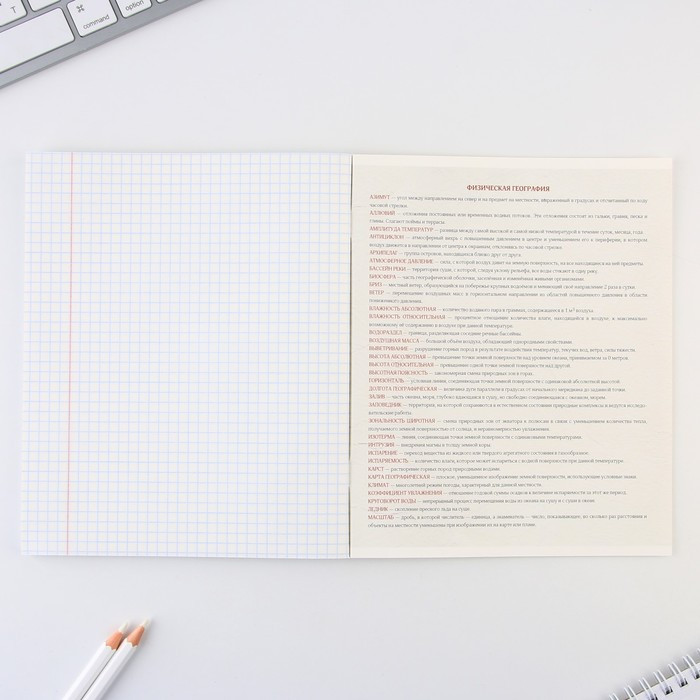 T
⌘
command
option
ФИЗИЧЕСКАЯ ГЕОГРАФИЯ
АЗИМУТ — угол между направлением на север и на предмет на местности, выраженный в градусах и отсчитанный по ходу
часовой стрелки.
АЛЛЮВИЙ — отложения постоянных или временных водных потоков. Эти отложения состоят из гальки, гравия, песка и
глины. Слагают поймы и террасы.
АМПЛИТУДА ТЕМПЕРАТУР — разница между самой высокой и самой низкой температурой в течение суток, месяца, года.
АНТИЦИКЛОН — атмосферный вихрь с повышенным давлением в центре и уменьшением его к периферии, в котором
воздух движется в направлении от центра к окраинам, отклоняясь по часовой стрелке.
АРХИПЕЛАГ — группа островов, находящихся близко друг от друга.
АТМОСФЕРНОЕ ДАВЛЕНИЕ — сила, с которой воздух давит на земную поверхность, на все находящиеся на ней предметы.
БАССЕЙН РЕКИ — территория суши, с которой, следуя уклону рельефа, все воды стекают в одну реку.
БИОСФЕРА — часть географической оболочки, заселенная и изменённая живыми организмами.
БРИЗ — местный ветер, образующийся на побережье крупных водоёмов и меняющий своё направление 2 раза в сутки.
ВЕТЕР — перемещение воздушных масс в горизонтальном направлении из областей повышенного давления в области
пониженного давления.
ВЛАЖНОСТЬ АБСОЛЮТНАЯ — количество водяного пара в граммах, содержащееся в 1 м³ воздуха.
ВЛАЖНОСТЬ ОТНОСИТЕЛЬНАЯ — процентное отношение количества влаги, находящейся в воздухе, к максимально
возможному её содержанию в воздухе при данной температуре.
ВОДОРАЗДЕЛ — граница, разделяющая соседние речные бассейны.
ВОЗДУШНАЯ МАССА — большой объём воздуха, обладающий однородными свойствами.
ВЫВЕТРИВАНИЕ — разрушение горных пород в результате воздействия температур, текучих вод, ветра, силы тяжести.
ВЫСОТА АБСОЛЮТНАЯ — превышение точки земной поверхности над уровнем океана, принимаемом за 0 метров.
ВЫСОТА ОТНОСИТЕЛЬНАЯ — превышение одной точки земной поверхности над другой.
ВЫСОТНАЯ ПОЯСНОСТЬ — закономерная смена природных зон в горах.
ГОРИЗОНТАЛЬ — условная линия, соединяющая точки земной поверхности с одинаковой абсолютной высотой.
ДОЛГОТА ГЕОГРАФИЧЕСКАЯ — величина дуги параллели в градусах от начального меридиана до заданной точки.
ЗАЛИВ — часть океана, моря, глубоко вдающаяся в сушу, но свободно соединяющаяся с океаном, морем.
ЗАПОВЕДНИК — территория, на которой сохраняются в естественном состоянии природные комплексы и ведутся исследо-
вательские работы.
ЗОНАЛЬНОСТЬ ШИРОТНАЯ — смена природных зон от экватора к полюсам в связи с уменьшением количества тепла,
получаемого земной поверхностью от солнца, и неравномерностью увлажнения.
ИЗОТЕРМА — линия, соединяющая точки земной поверхности с одинаковыми температурами.
ИНТРУЗИЯ — внедрения магмы в толщу земной коры.
ИСПАРЕНИЕ — переход вещества из жидкого или твердого агрегатного состояния в газообразное.
ИСПАРЯЕМОСТЬ — количество влаги, которое может испариться с водной поверхности при данной температуре.
КАРСТ — растворение горных пород природными водами.
КАРТА ГЕОГРАФИЧЕСКАЯ — плоское, уменьшенное изображение земной поверхности, использующее условные знаки.
КЛИМАТ — многолетний режим погоды, характерный для данной местности.
КОЭФФИЦИЕНТ УВЛАЖНЕНИЯ — отношение годовой суммы осадков к величине испаряемости за этот же период.
КРУГОВОРОТ ВОДЫ — непрерывный процесс перемещения воды из океана на сушу и с суши в океан.
ЛЕДНИК — скопление пресного льда на суше.
МАСШТАБ — дробь, в которой числитель — единица, а знаменатель — число, показывающее, во сколько раз расстояния и
объекты на местности уменьшены при изображении их на карте или плане.